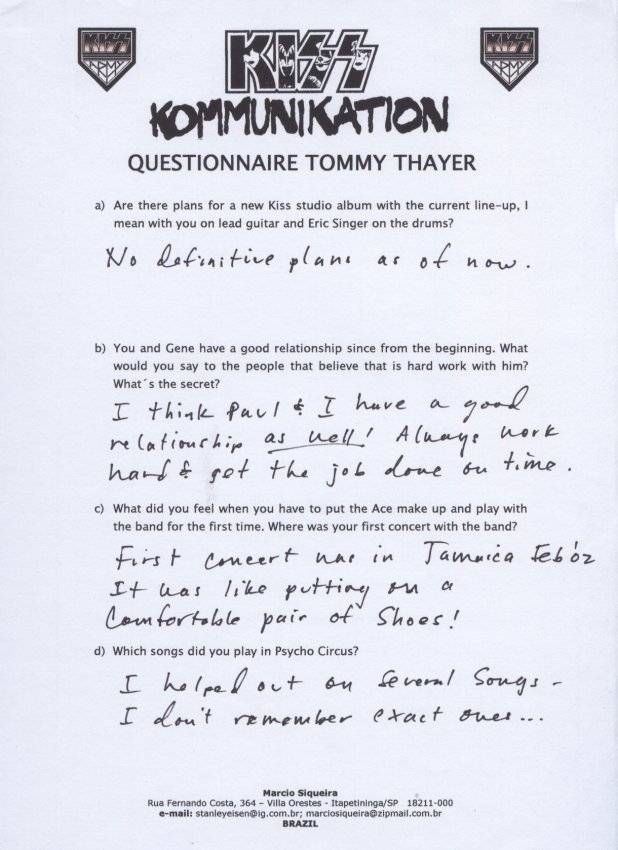 KISS
ARMY
KISS
KISS
ARMY
KOMMUNIKATION
QUESTIONNAIRE TOMMY THAYER
a) Are there plans for a new Kiss studio album with the current line-up, I
mean with you on lead guitar and Eric Singer on the drums?
No definitive plans as of now.
b) You and Gene have a good relationship since from the beginning. What
would you say to the people that believe that is hard work with him?
What´s the secret?
I think Paul & I have a good
relationship as well! Always work
hard & get the job done on time.
c) What did you feel when you have to put the Ace make up and play with
the band for the first time. Where was your first concert with the band?
First concert was in Jamaica Feb'02
It was like putting on a
Comfortable pair of Shoes!
d) Which songs did you play in Psycho Circus?
I helped out on several songs -
I don't remember exact ones...
Marcio Siqueira
Rua Fernando Costa, 364 – Villa Orestes - Itapetininga/SP 18211-000
e-mail: stanleyeisen@ig.com.br; marciosiqueira@zipmail.com.br
BRAZIL